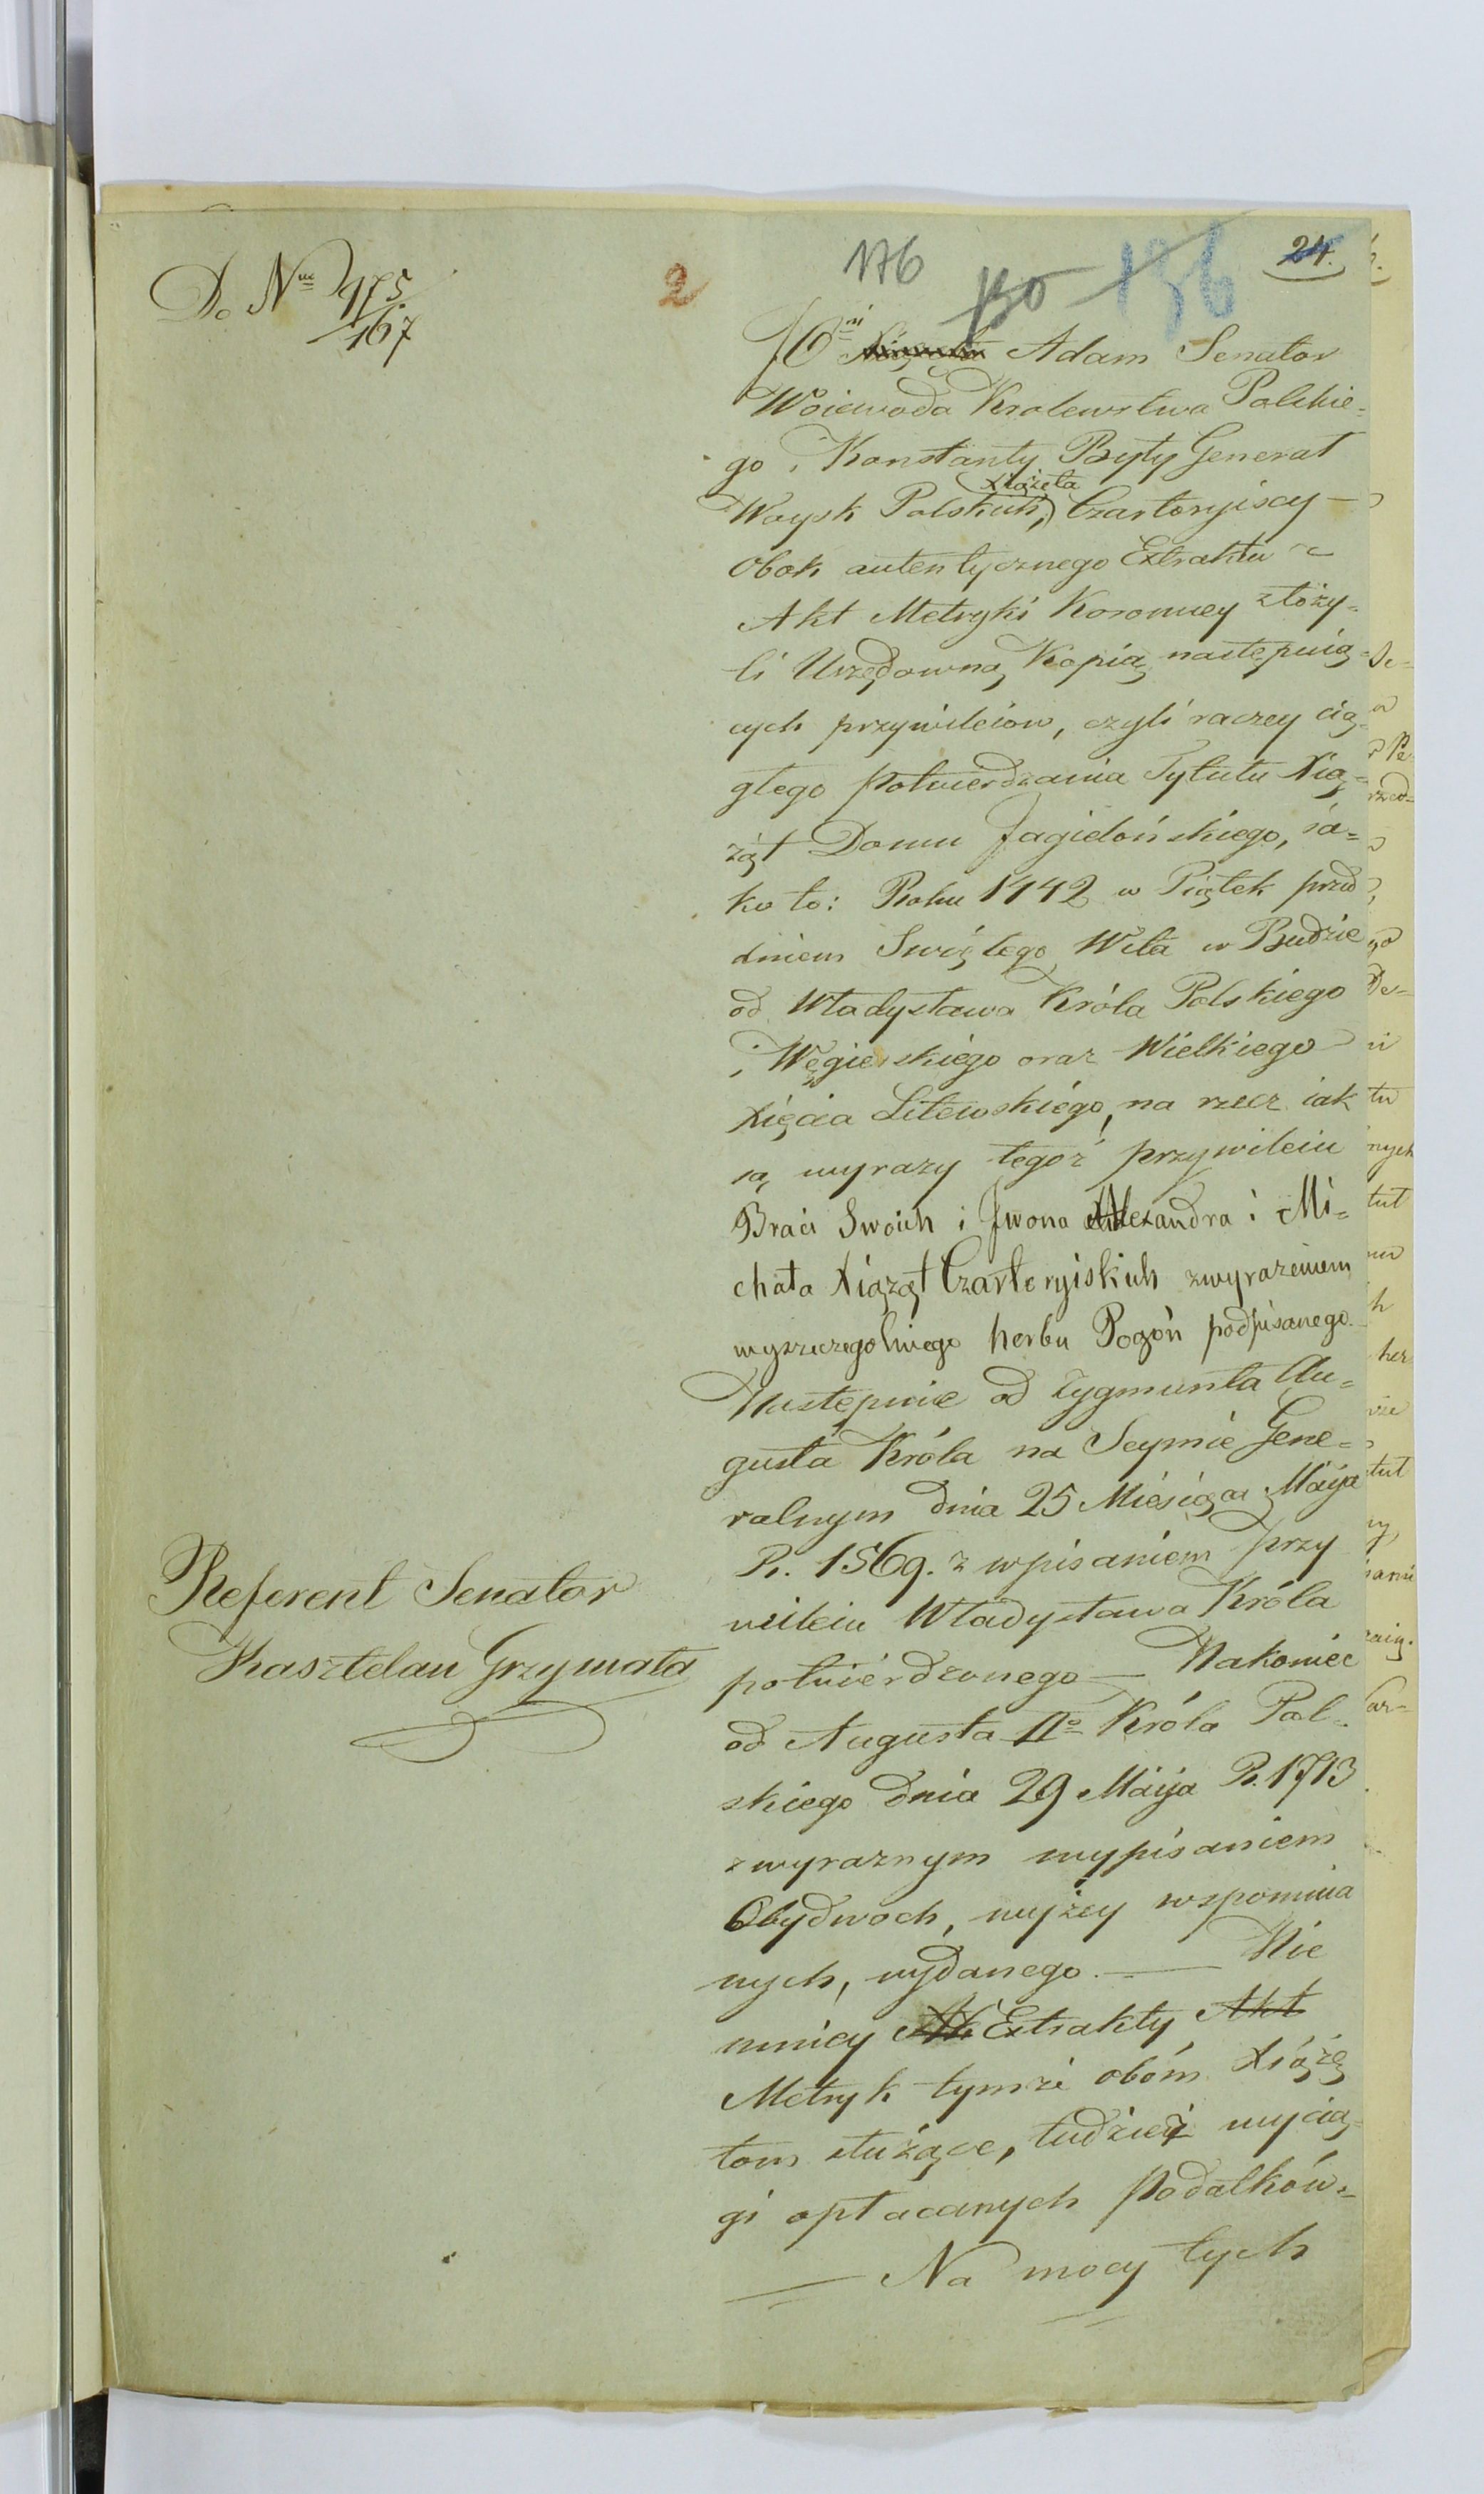 Do Nru 975/167
2
176
130
136
24.
JO ni Adam Senator
Woiewoda Krolewstwa Polskie=
go i Konstanty Były Generał
Xiążęta
Woysk Polskich, Czartoryiscy —
Obok autentycznego Extraktu z
Akt Metryki Koronney złoży=
li Urzędowną Kopią następuią=
cych przywileiow, czyli raczey cią=
głego potwierdzania Tytułu Xią=
żąt Domu Jagielońskiego, ia=
ko to: Roku 1442 w Piątek przed
dniem Swiętego Wita w Budzie
od Władysława Króla Polskiego
i Węgierskiego oraz Wielkiego
Xięcia Litewskiego, na rzecz iak
są wyrazy tegoż przywileiu
Braci Swoich i Iwona Alexandra i Mi=
chała Xiążąt Czartoryiskich zwyrażeniem
wyszczegolniego herbu Pogoń podpisanego.
Następnie od Zygmunta Au=
gusta Króla na Seymie Gene=
ralnym dnia 25 Miesiąca Maija
R. 1569. z wpisaniem przy
wileiu Władysława Króla
potwierdzonego — Nakoniec
od Augusta IIo Króla Pol=
skiego dnia 29 Maija R. 1713
z wyraznym wypisaniem
Obydwoch, wyżey wspomnia
nych, wydanego. — Nie
mnićy Extrakty Akt
Metryk tymże obóm Xiążę
tom służące, tudzież wycią=
gi opłacanych Podatków.=
— Na mocy tych
Referent Senator
Kasztelan Grzymała